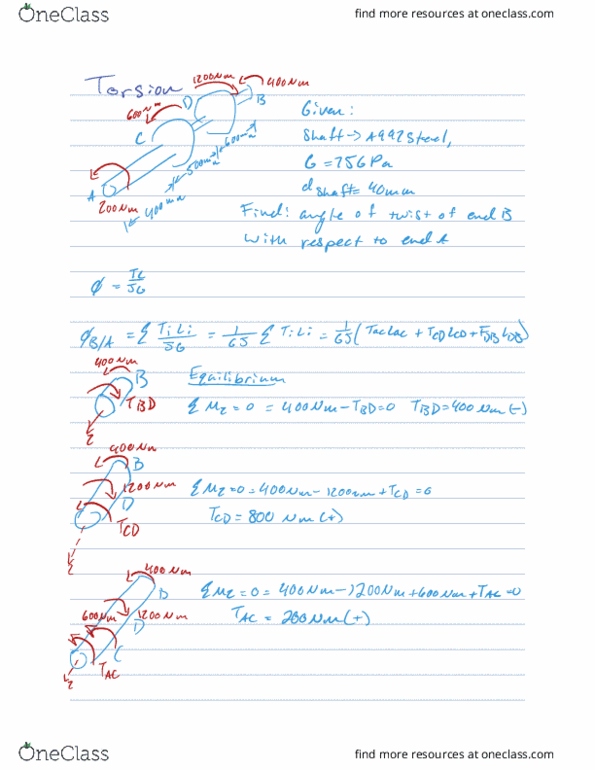 OneClass
find more resources at oneclass.com
Torsion
1200Nm
400Nm
600Nm
D
B
C
Given:
Shaft → A992 Steel,
G = 75GPa
d shaft = 40mm
A
200Nm
400mm
500mm
600mm
Find: angle of twist of end B
with respect to end A
φ = TL/JG
φB/A = Σ TiLi/JG = 1/GJ Σ TiLi = 1/GJ (TACLAC + TCDLCD + TDBLDB)
400Nm
B
TBD
z
Equilibrium
ΣMz = 0 = 400Nm - TBD = 0 TBD = 400Nm (-)
400Nm
B
1200Nm
D
TCD
z
ΣMz = 0 = 400Nm - 1200Nm + TCD = 0
TCD = 800 Nm (+)
400Nm
B
600Nm
1200Nm
D
C
TAC
z
ΣMz = 0 = 400Nm - 1200Nm + 600Nm + TAC = 0
TAC = 200Nm (+)
OneClass
find more resources at oneclass.com